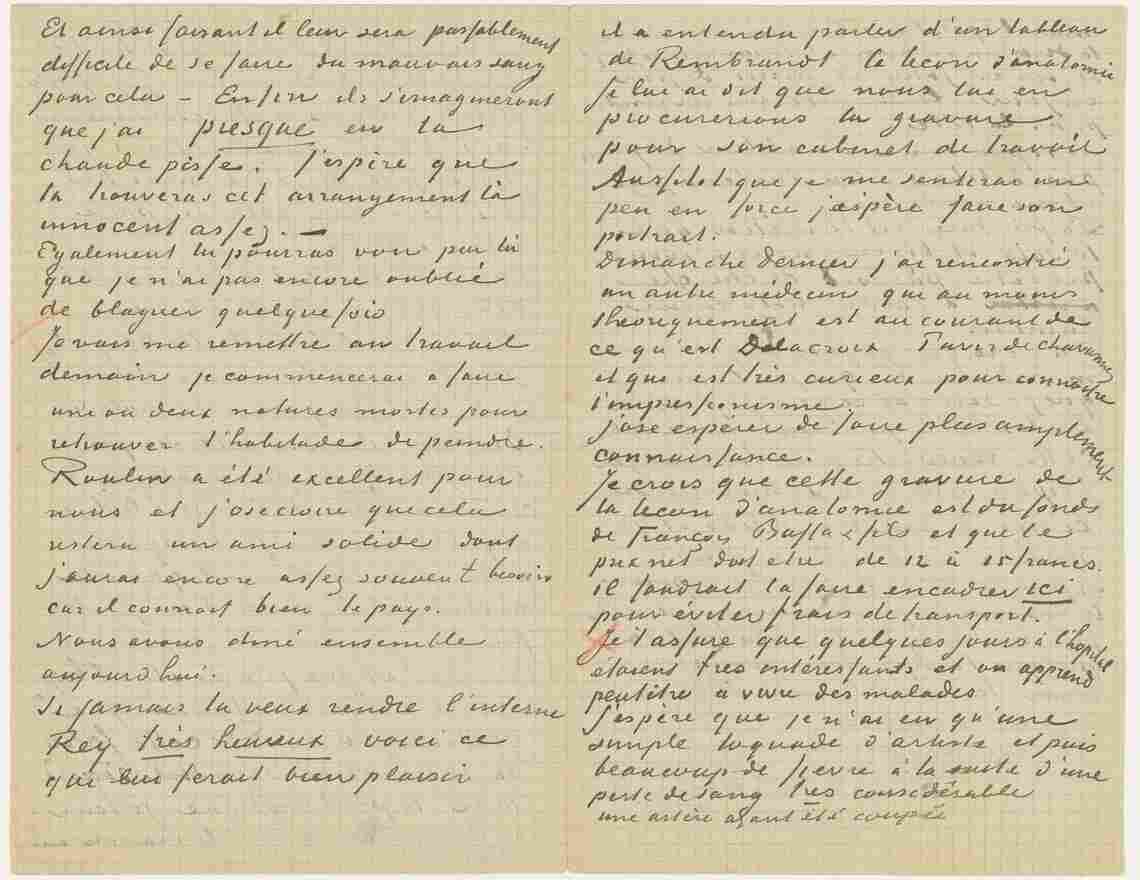 Et ainsi faisant il leur sera passablement
difficile de se faire du mauvais sang
pour cela – Enfin ils s'imagineront
que j'ai presque eu la
chaude pisse. J'espère que
tu trouveras cet arrangement là
innocent assez. –
Egalement tu pourras voir par là
que je n'ai pas encore oublié
de blaguer quelquefois
Je vais me remettre au travail
demain je commencerai a faire
une ou deux natures mortes pour
retrouver l'habitude de peindre.
Roulin a été excellent pour
nous et j'ose croire que cela
restera un ami solide dont
j'aurai encore assez souvent besoin
car il connait bien le pays.
Nous avons diné ensemble
aujourd'hui.
Si jamais tu veux rendre l'interne
Rey très heureux voici ce
qui lui ferait bien plaisir
il a entendu parler d'un tableau
de Rembrandt la lecon d'anatomie
Je lui ai dit que nous lui en
procurerions la gravure
pour son cabinet de travail
Aussitot que je me sentirai un
peu en force j'espère faire son
portrait.
Dimanche dernier j'ai rencontré
un autre médecin qui au moins
théoriquement est au courant de
ce qu'est Delacroix Puvis de chavannes
et qui est très curieux pour connaitre
l'impressionisme.
j'ose espérer de faire plus amplement
connaissance.
Je crois que cette gravure de
la lecon d'anatomie est du fonds
de François Buffa & fils et que le
prix net doit etre de 12 à 15 francs.
il faudrait la faire encadrer ici
pour éviter frais de transport.
Je t'assure que quelques jours à l'hopital
étaient très intéressants et on apprend
peutêtre a vivre des malades
J'espère que je n'ai eu qu'une
simple toquade d'artiste et puis
beaucoup de fievre à la suite d'une
perte de sang très considérable
une artère ayant été coupée